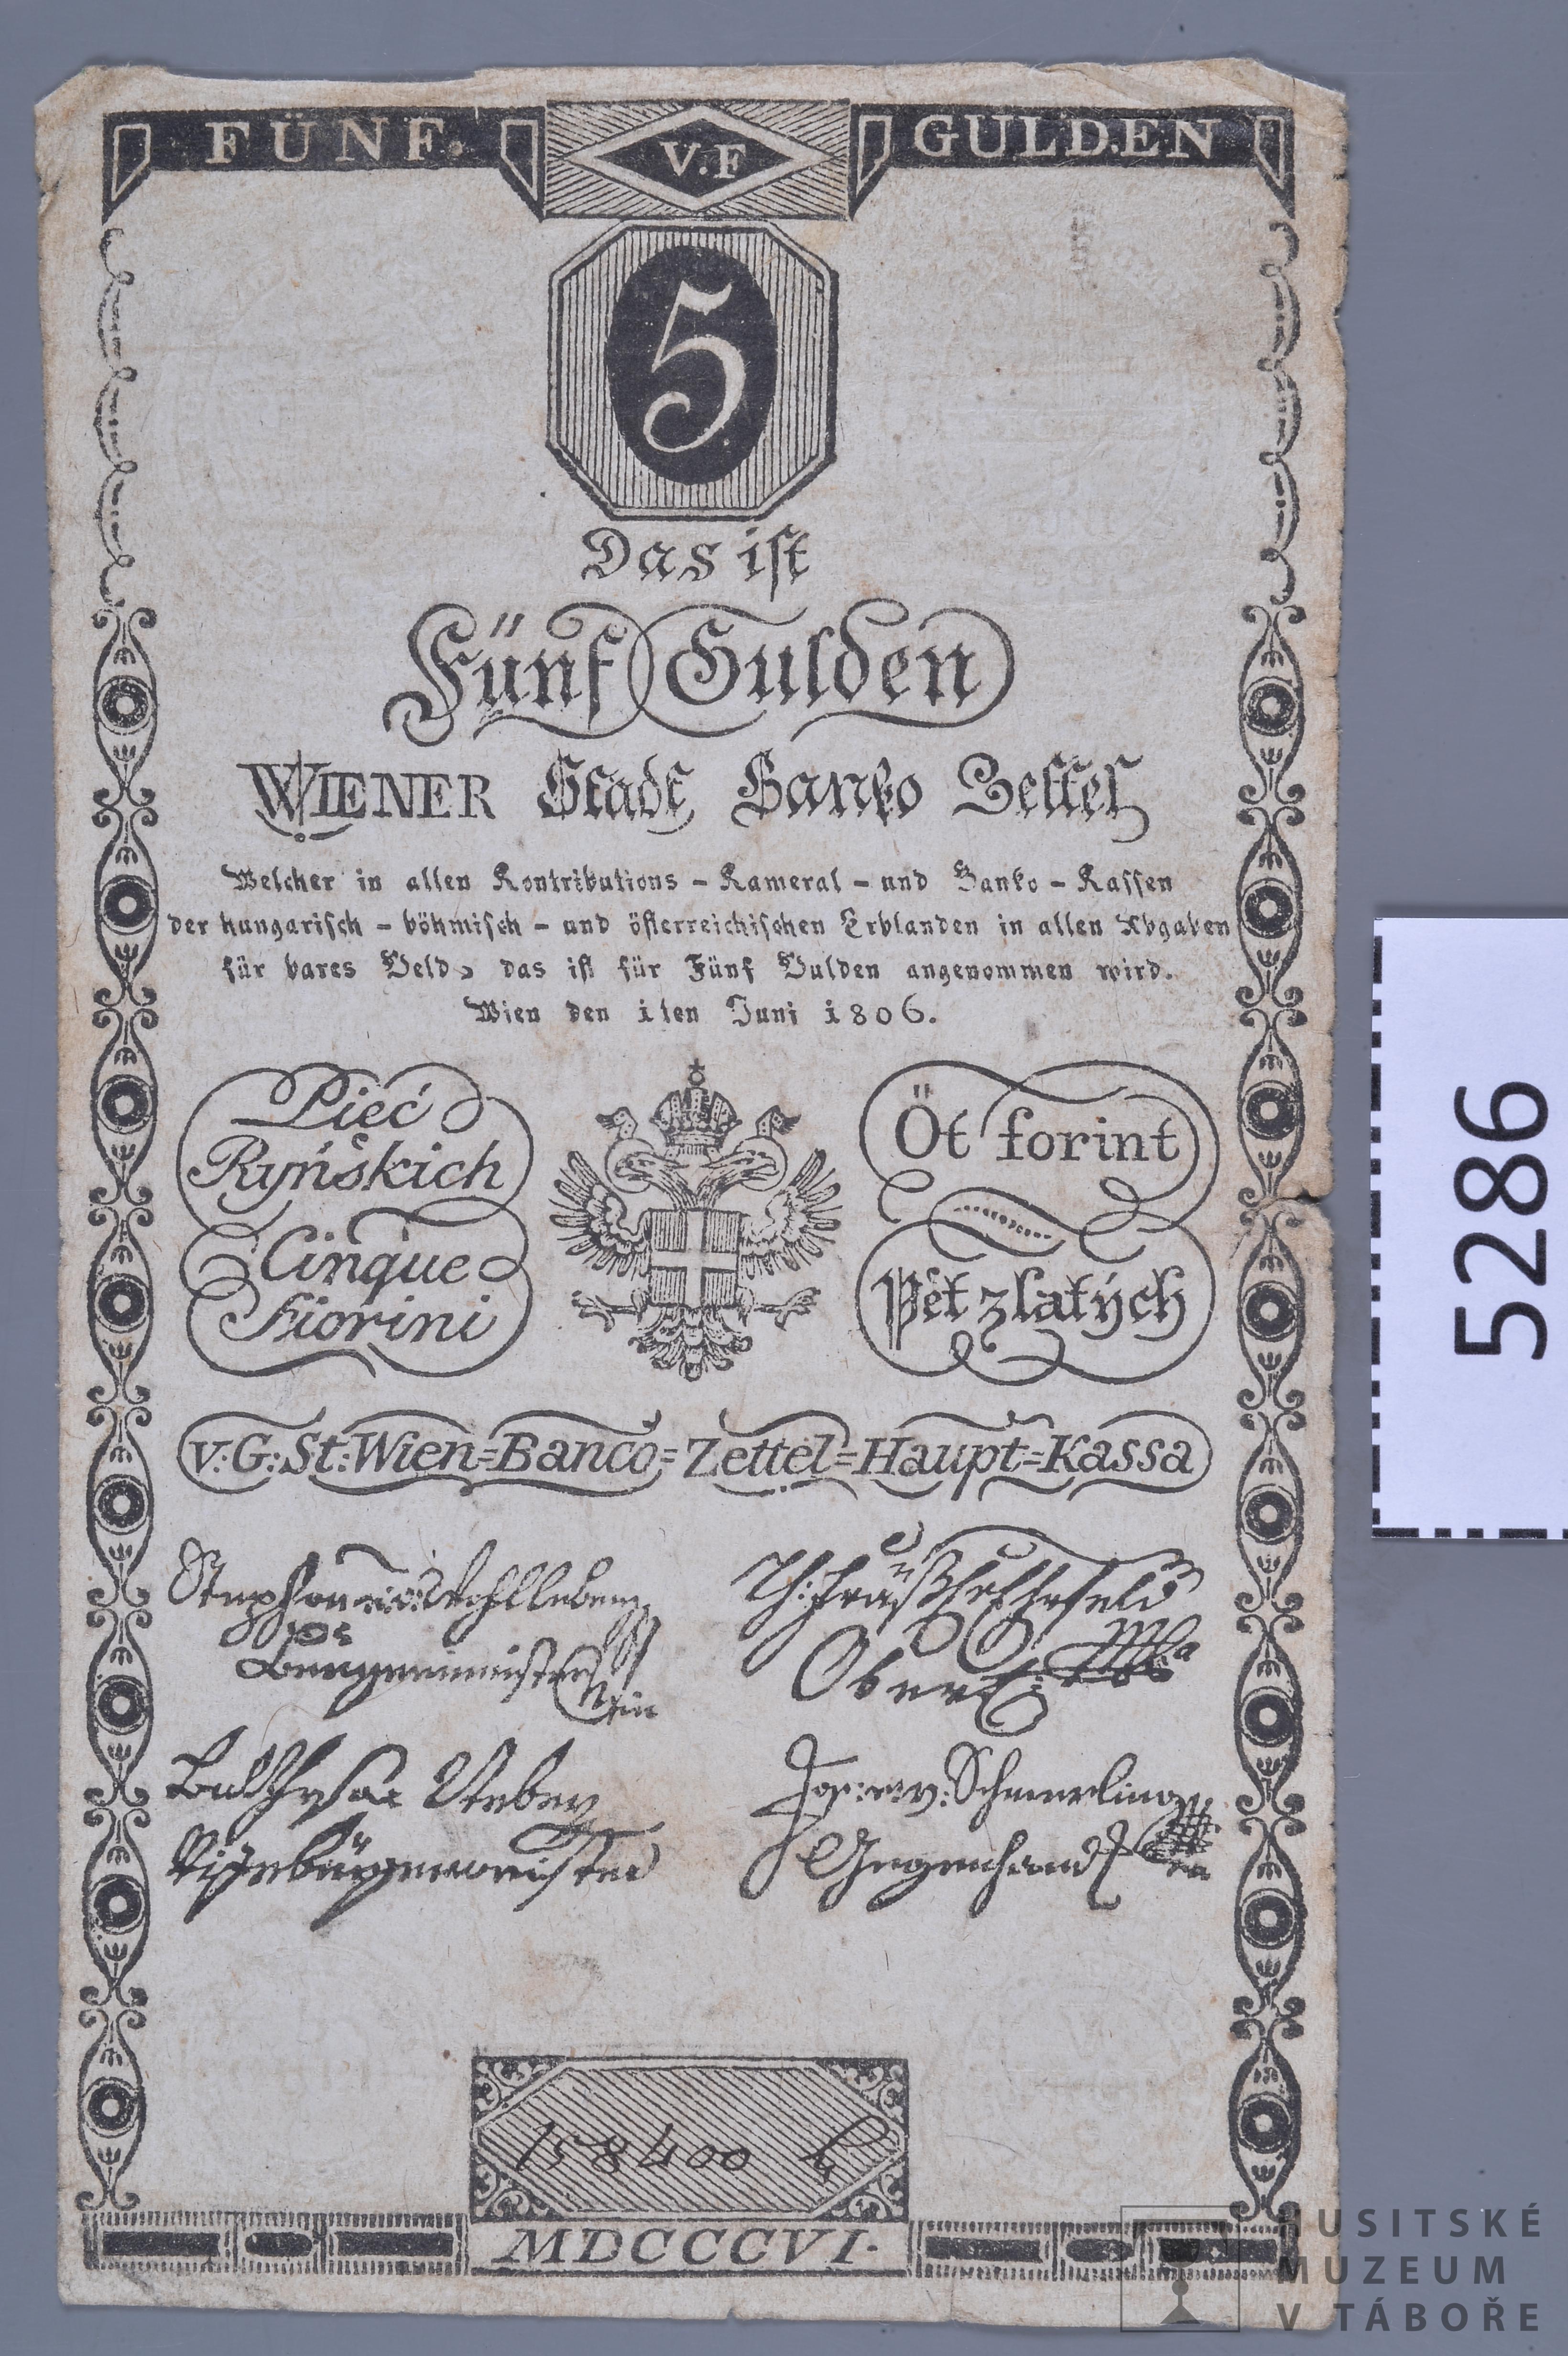 FÜNF.
V.F
GULDEN
5
Das ist
Fünf Gulden
WIENER Stadt Banko Zettel
Welcher in allen Kontributions - Kameral - und Banko - Kassen
der hungarisch - böhmisch - und österreichischen Erblanden in allen Abgaben
für bares Geld, das ist für Fünf Gulden angenommen wird.
Wien den 1ten Juni 1806.
Pieć
Ryńskich
Öt forint
Cinque
Fiorini
Pět zlatých
V:G:St:Wien=Banco=Zettel=Haupt=Kassa
Stephan v: Wohlleben
Burgermeister
Ober
Jos: v: Schmerling
Vizebürgermeister
Gegenhand
158400
MDCCCVI.
5286
HUSITSKÉ
MUZEUM
V TÁBOŘE